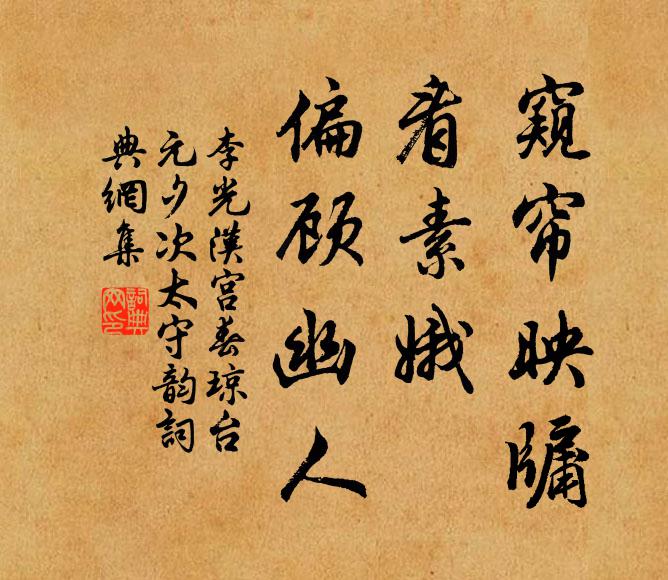 窥帘映牖
看素娥
偏顾幽人
李光汉宫春琼台
元夕次太守韵詞
典網集
詞典
网印